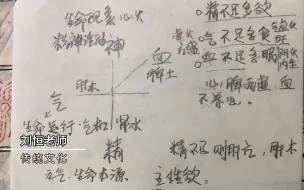 生命现象 心火
精神活动 神
血
脾土
肝木
气
生命运行 气机 肾水
精
元气 生命本源
主性欲
精不足多欲
气不足多食
血不足多眠
心脾两虚 血
不养心
精不足则肝亢 肝木
刘恒老师
传统文化